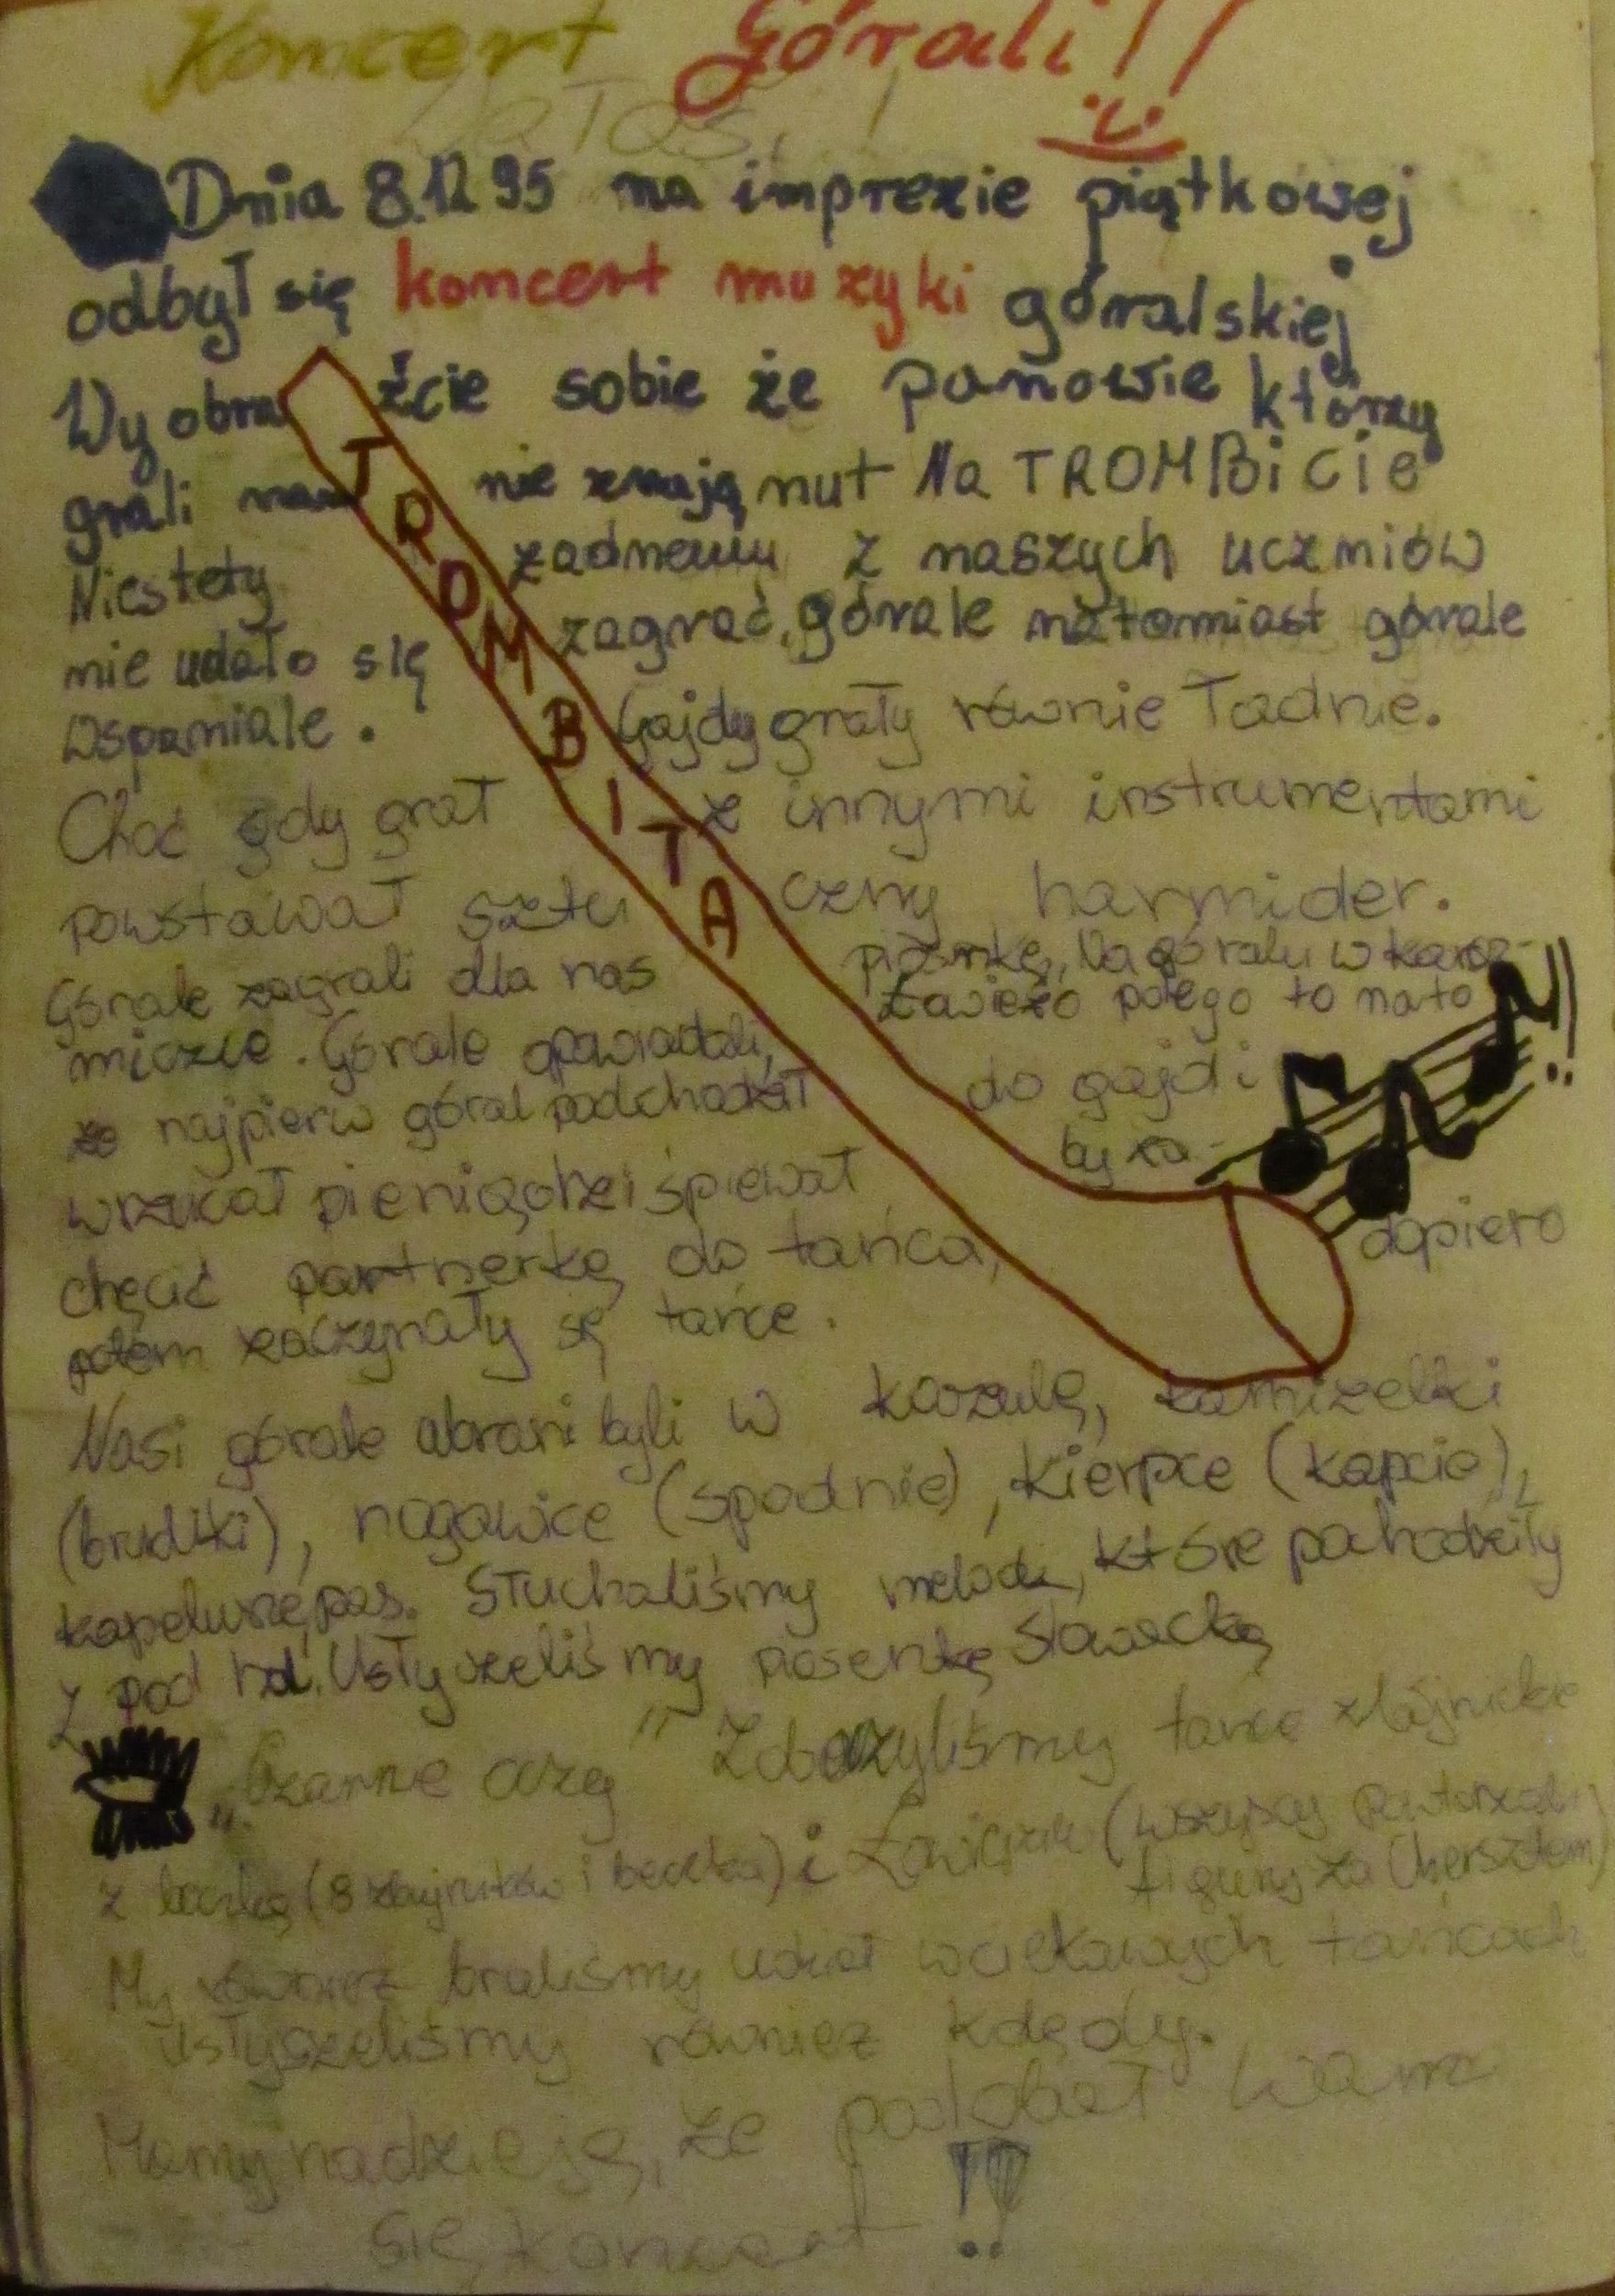 Koncert Górali!!
Dnia 8.12 95 na imprezie piątkowej
odbył się koncert muzyki góralskiej
Wyobraźcie sobie że panowie którzy
grali nam nie znają nut Na TROMBiCie
Niestety żadnemu z naszych uczniów
nie udało się zagrać, górale natomiast górale
wspaniale. Gajdy grały równie ładnie.
Choć gdy grał z innymi instrumentami
powstawał sztuczny harmider.
Górale zagrali dla nas piosnkę, Na góralu w karcz-
miczce. Górale opowiadali, polego to na to
że najpierw góral podchodził do gajd i
wrzucał pieniądze i śpiewał by za-
chęcić partnerkę do tańca, dopiero
potem zaczynały się tańce.
TROMBITA
Nasi górale ubrani byli w koszulę, kamizelki
(brucliki), nogawice (spodnie), Kierpce (kapcie),
kapelusze, pas. Słuchaliśmy melodi, które pochodziły
z pod hal. Usłyszeliśmy piosenkę Słowacką
„Czarne oczy" Zobaczyliśmy tańce zbójnickie
z beczką (8 zbójników i beczka) i (wszyscy powtarzali
figury za Chersztem)
My również braliśmy udział w ciekawych tańcach
Usłyszeliśmy również kolędy.
Mamy nadzieję, że podobał wam
się koncert!!